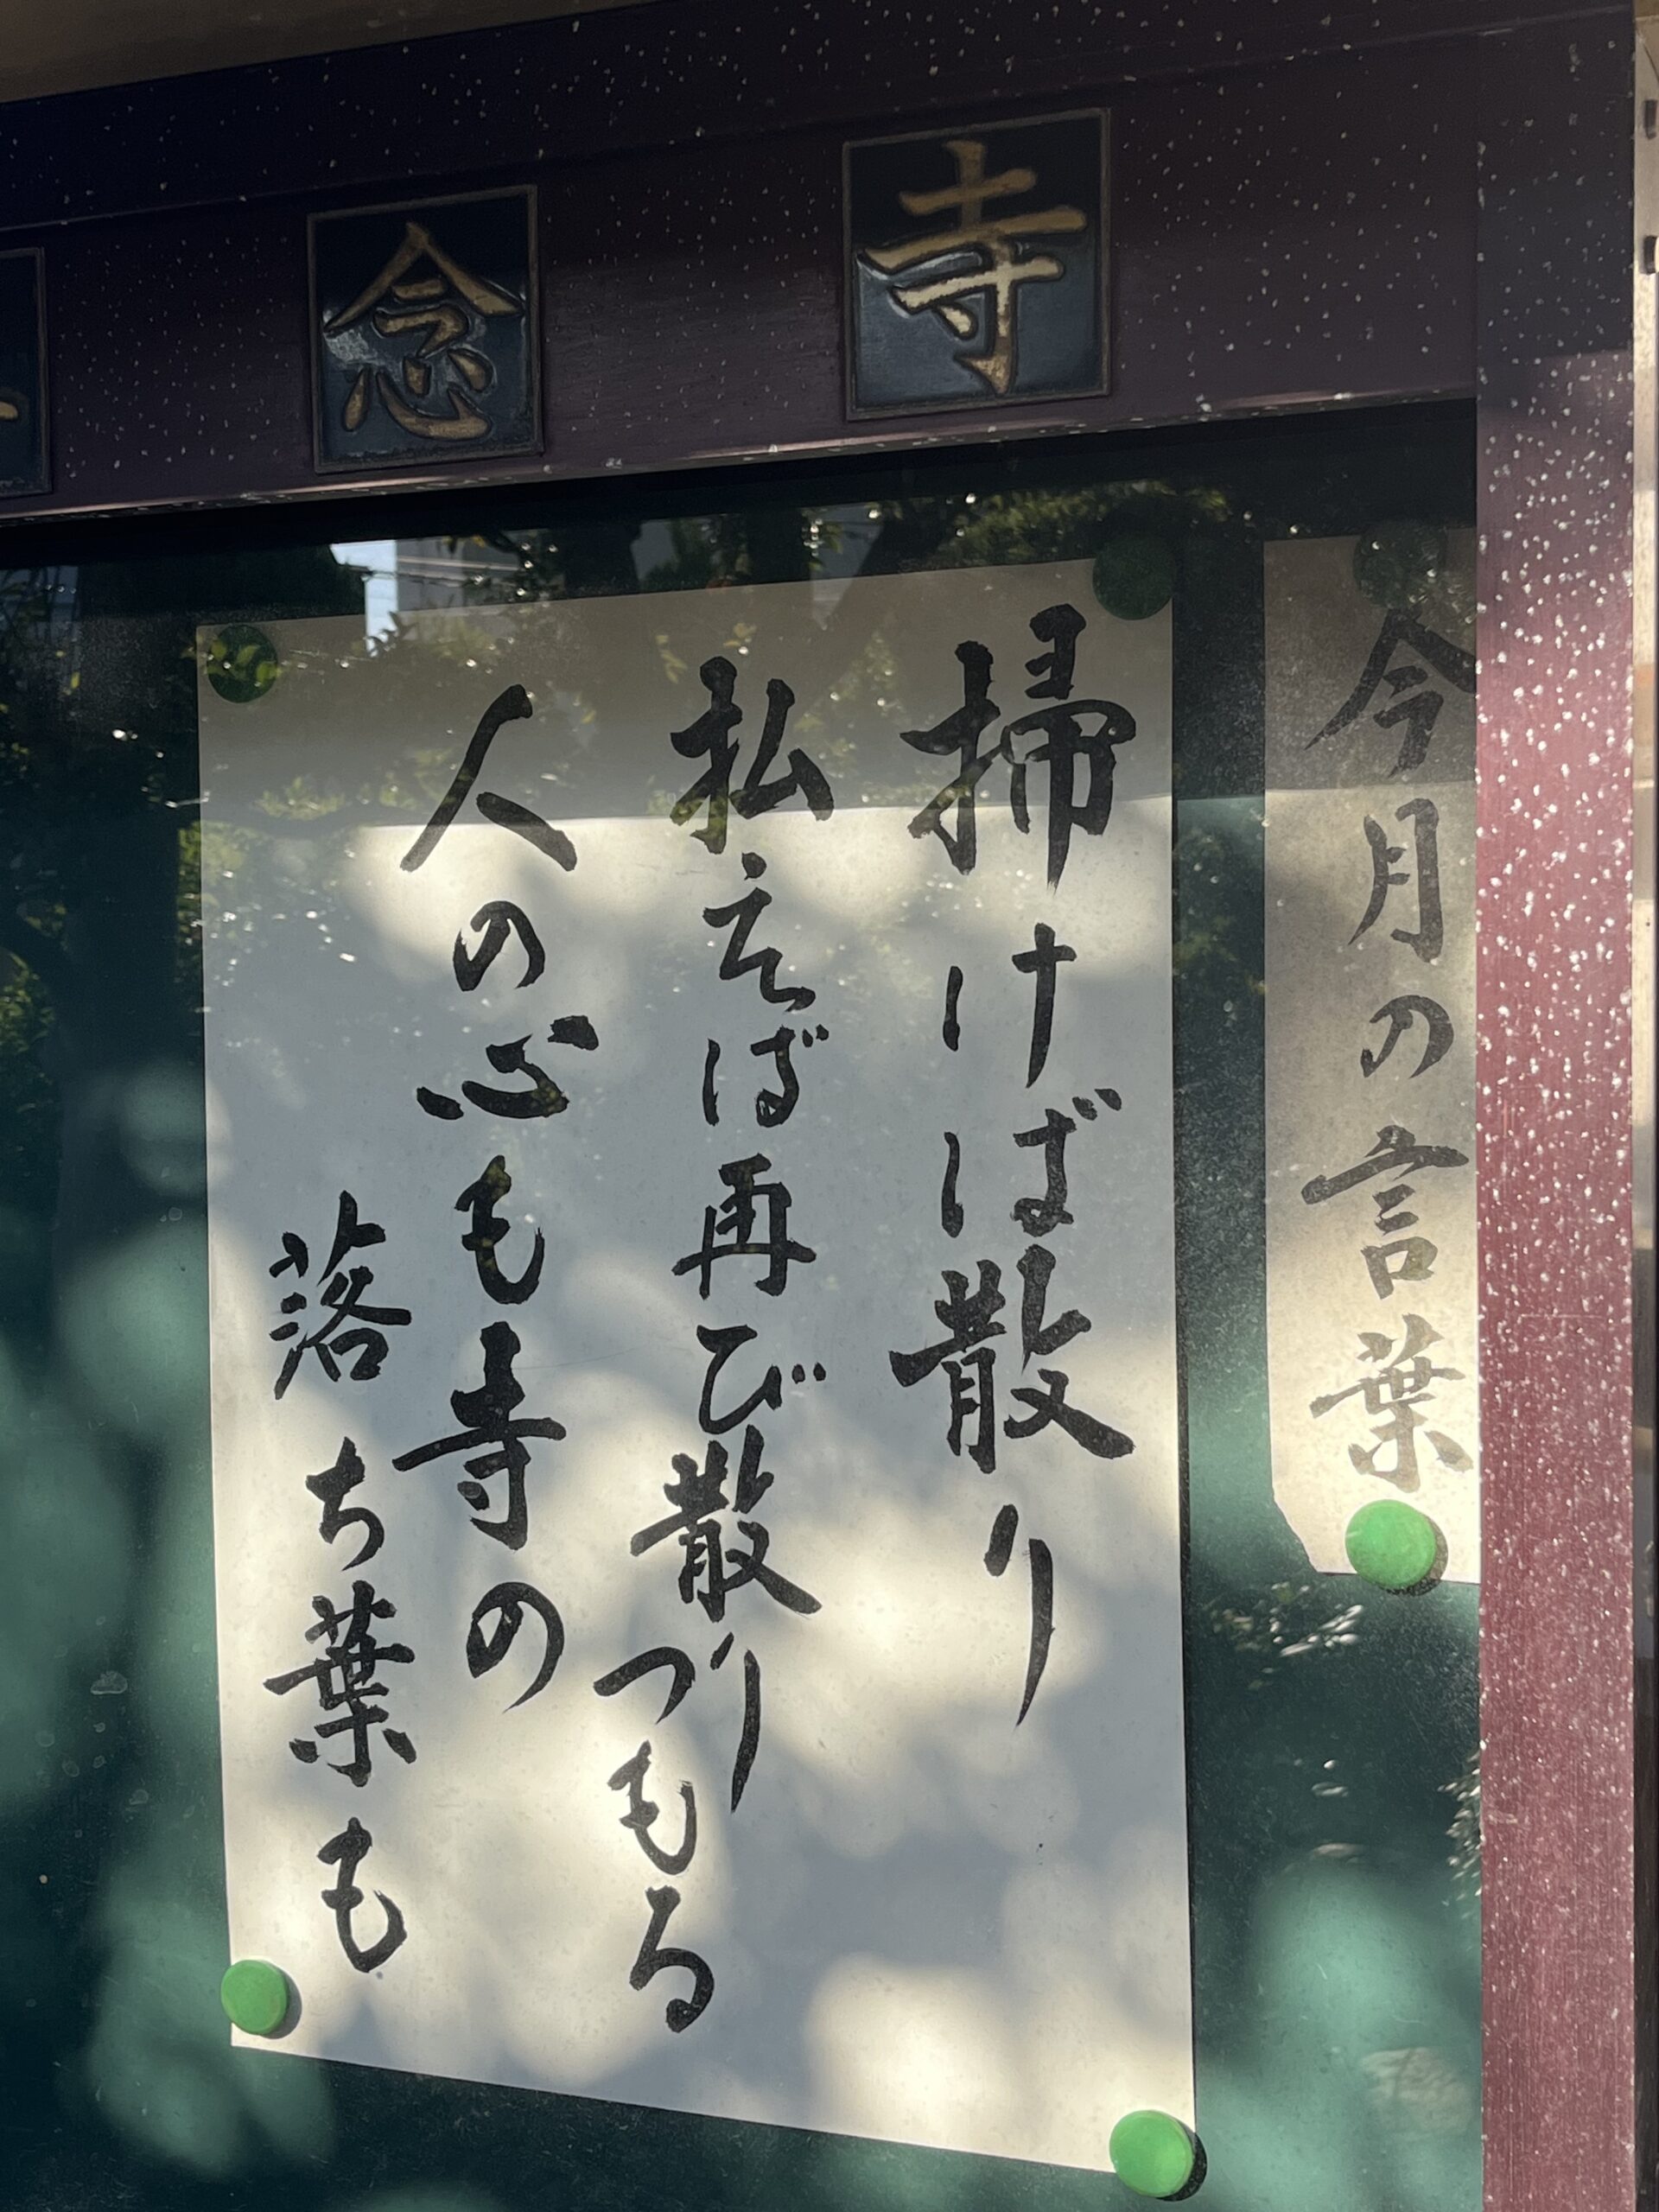 念寺
今月の言葉
掃けば散り
払えば再び散りつもる
人の心も寺の
落ち葉も